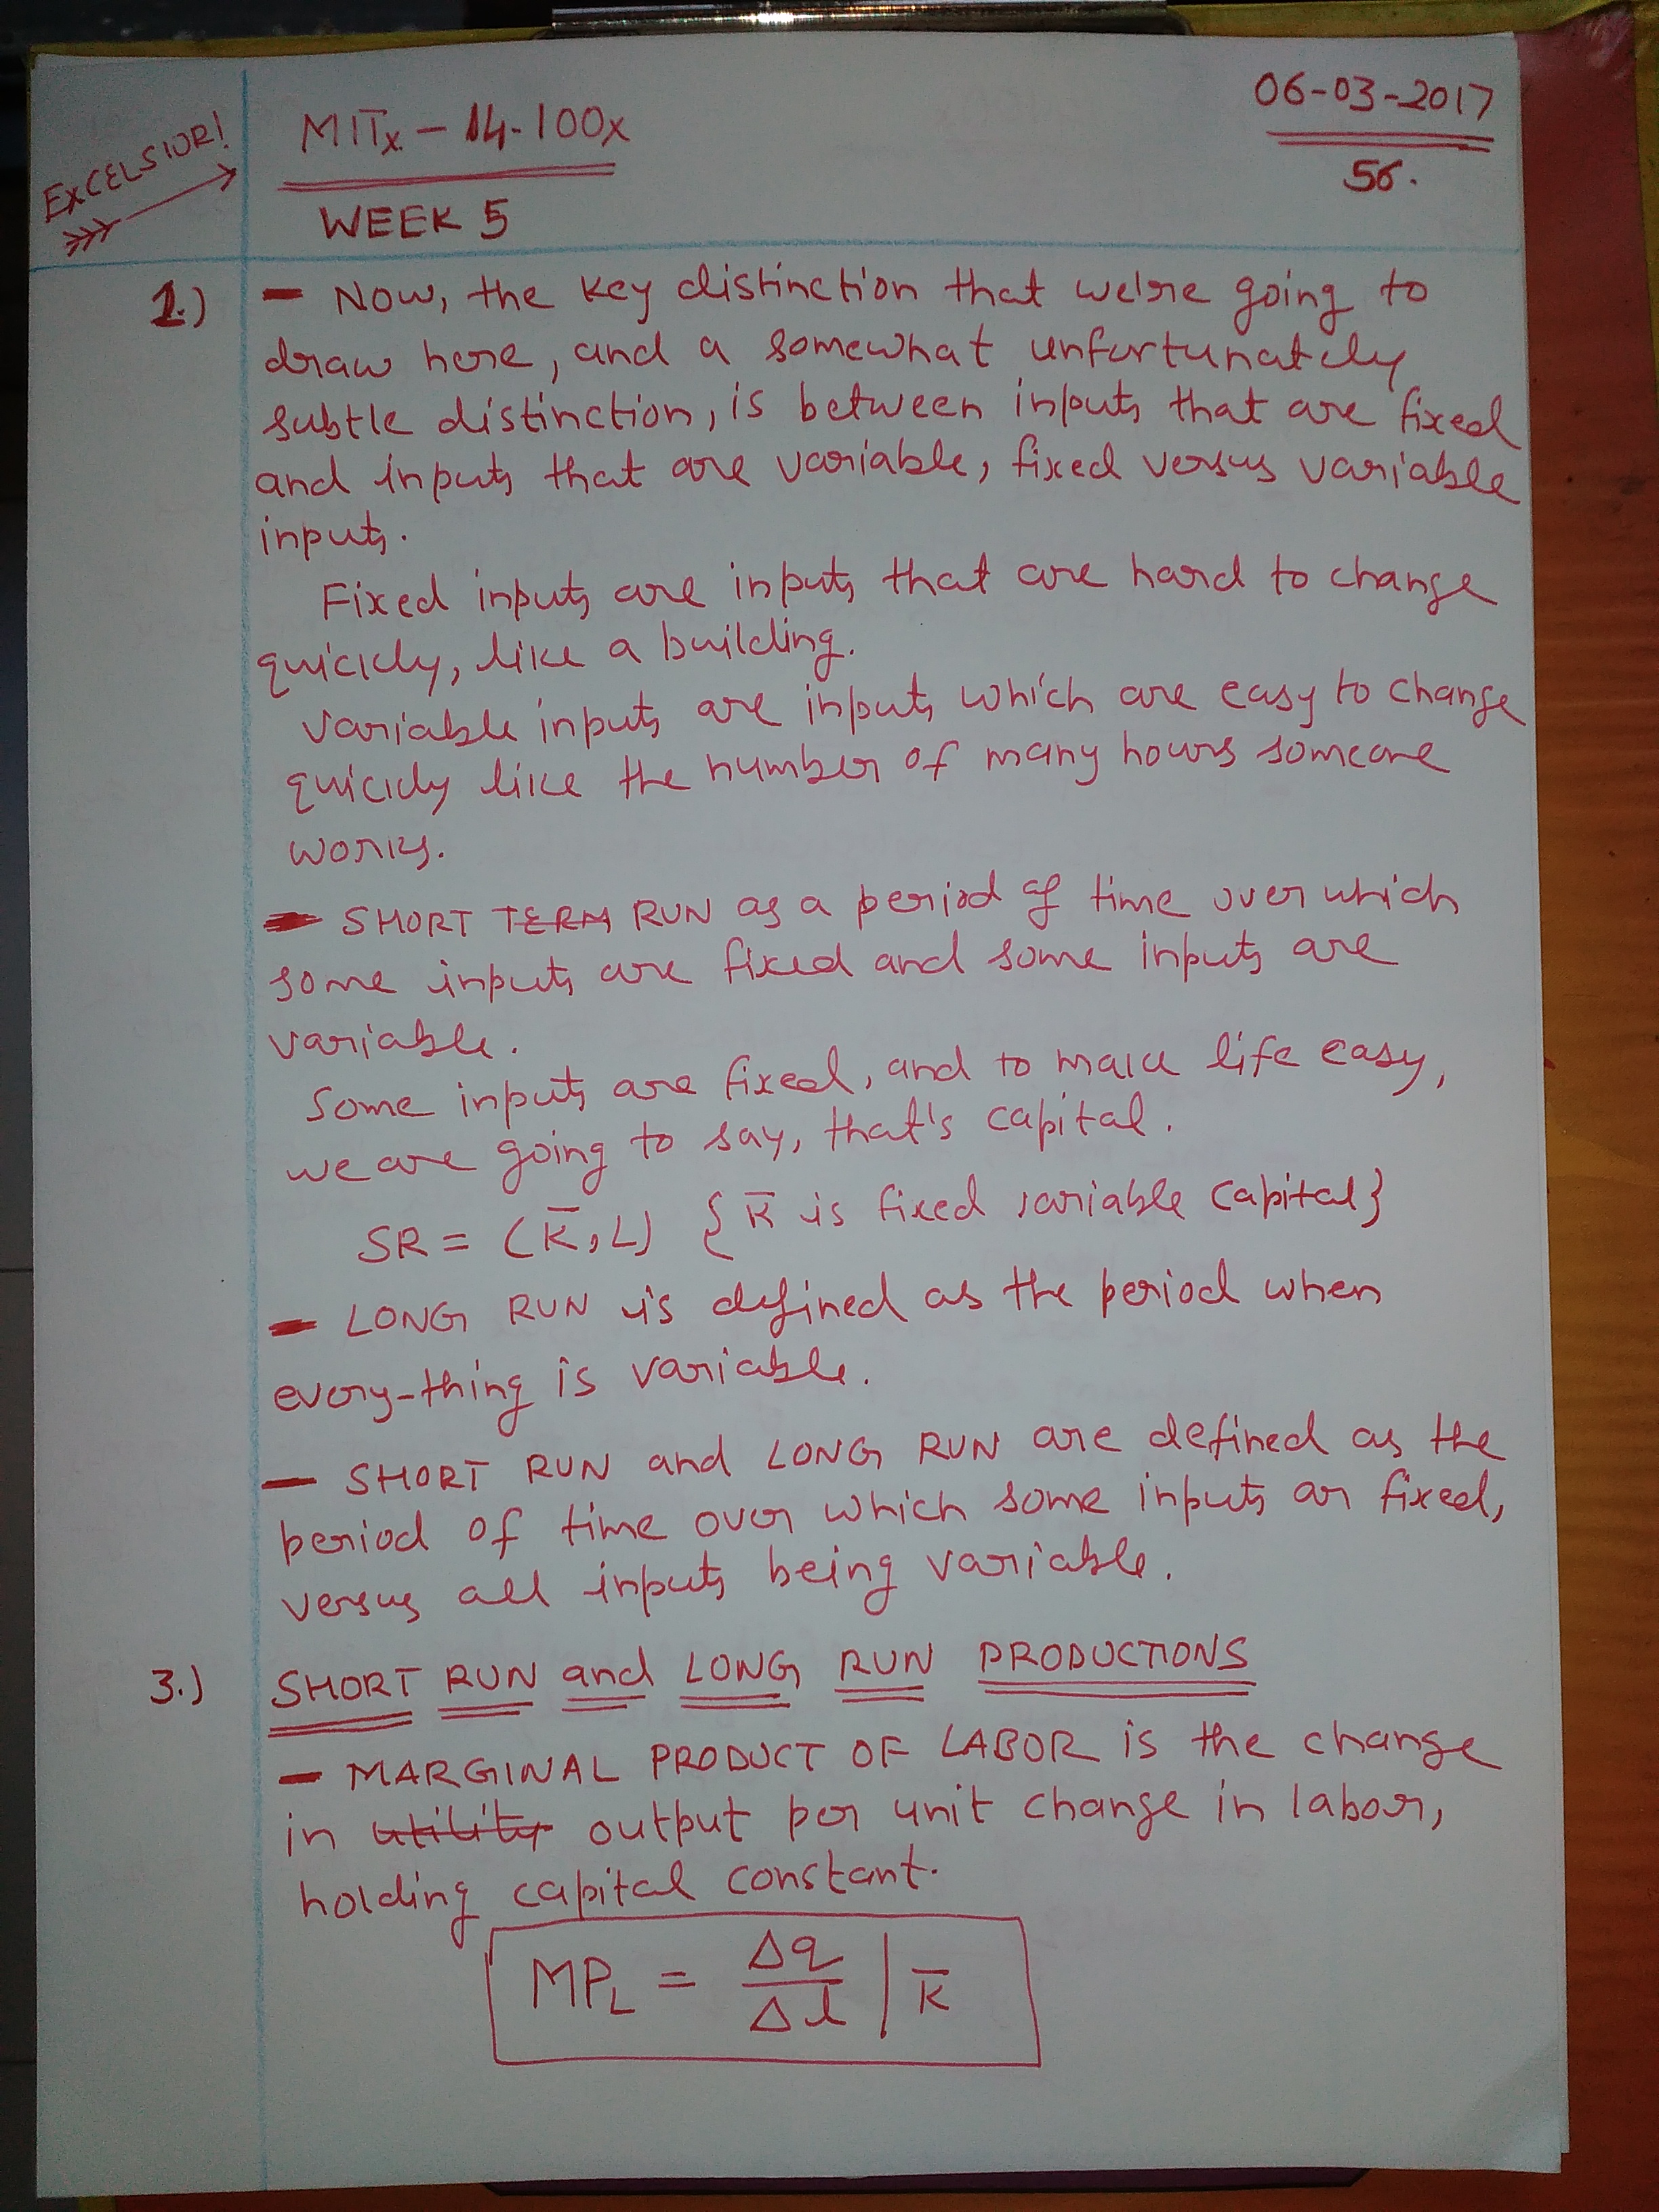 EXCELSIOR!
MITx - 14.100x
06-03-2017
56.
WEEK 5
1.) - Now, the key distinction that we're going to
draw here, and a somewhat unfortunately
subtle distinction, is between inputs that are fixed
and inputs that are variable, fixed versus variable
inputs.
Fixed inputs are inputs that are hard to change
quickly, like a building.
Variable inputs are inputs which are easy to change
quickly like the number of many hours someone
works.
- SHORT TERM RUN as a period of time over which
some inputs are fixed and some inputs are
variable.
Some inputs are fixed, and to make life easy,
we are going to say, that's capital.
SR = (K̅, L) {K̅ is fixed variable capital}
- LONG RUN is defined as the period when
every-thing is variable.
- SHORT RUN and LONG RUN are defined as the
period of time over which some inputs ar fixed,
versus all inputs being variable.
3.) SHORT RUN and LONG RUN PRODUCTIONS
- MARGINAL PRODUCT OF LABOR is the change
in utility output per unit change in labor,
holding capital constant.
MP_L = Δq/Δl | K̅